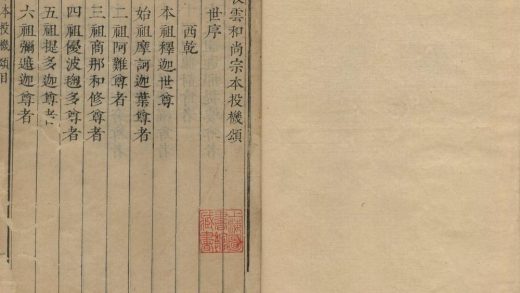 雲和尚宗本投機頌
世序
西乾
本祖釋迦世尊
始祖摩訶迦葉尊者
二祖阿難尊者
三祖商那和修尊者
四祖優波毱多尊者
五祖提多迦尊者
六祖彌遮迦尊者
本投機頌目